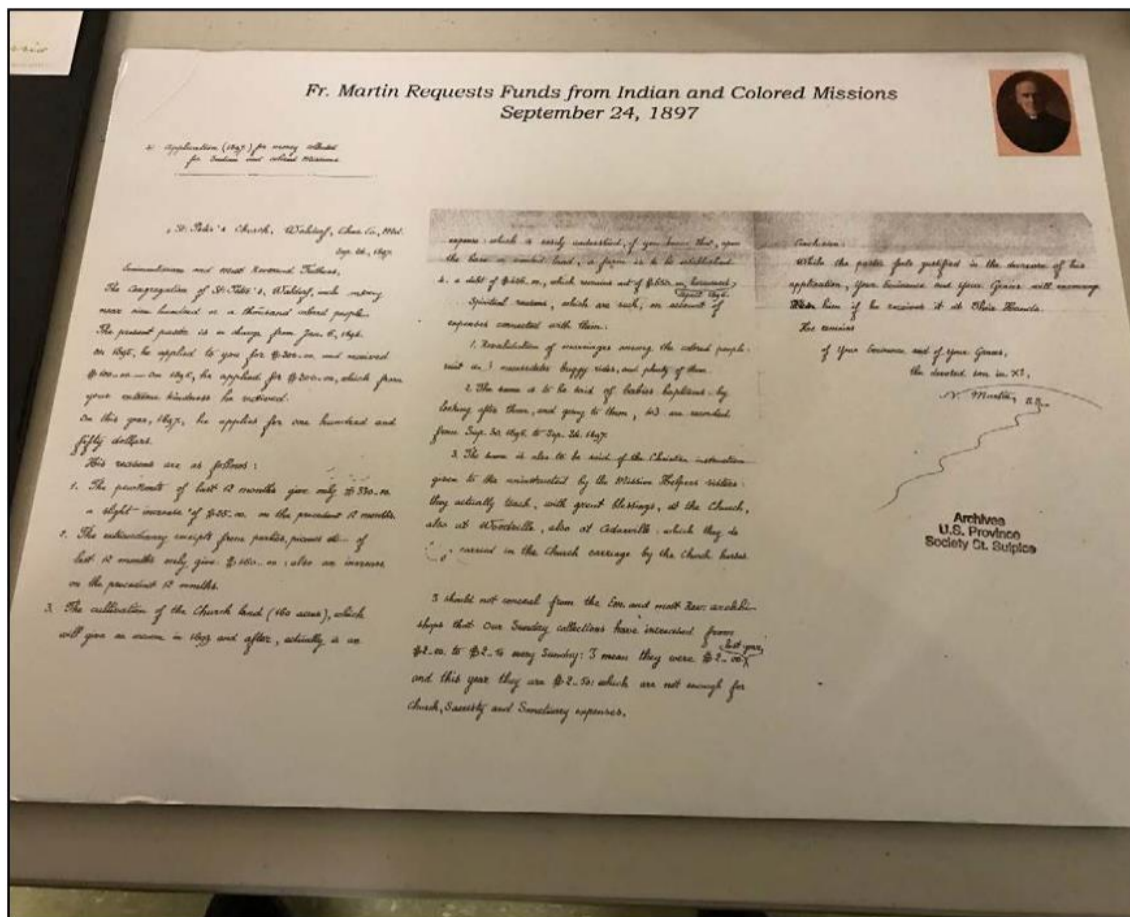 Fr. Martin Requests Funds from Indian and Colored Missions
September 24, 1897
Application (1897) for money collected
for Indian and colored Missions
St. Peter's Church, Waldorf, Chas. Co., Md.
Sep. 24, 1897.
and Most Reverend Fathers,
The Congregation of St. Peter's, Waldorf,
near nine hundred or a thousand colored people.
The present pastor is in charge from Jan. 6, 1895.
On 1895, he applied to you for $ 200.00 and received
$ 100.00 — On 1896, he applied for $ 200.00, which from
your extreme kindness he received.
On this year, 1897, he applies for one hundred and
fifty dollars.
His reasons are as follows:
1. The of last 12 months give only $ 330.00
a slight increase of $ 25.00 on the precedent 12 months.
2. The extraordinary receipts from parties, picnics of
last 12 months only give : also an increase
on the precedent 12 months.
3. The cultivation of the Church land (160 acres), which
will give an income in 1898 and after, actually is an
expense: which is easily understood, if you know that, upon
the land, a farm is to be established
4. a debt of , which remains out of borrowed,
April 1896.
Spiritual reasons, which are such, on account of
expenses connected with them.
1. Revalidation of marriages among the colored people:
necessitates buggy rides, and plenty of them.
2. The same is to be said of babies baptisms: by
looking after them, and going to them, are recorded
from Sep. 30, 1896 to Sep. 24, 1897.
3. The same is also to be said of the Christian instruction
given to the uninstructed by the Mission Helpers sisters:
they actually teach, with great blessings, at the Church,
also at Woodville, also at Cedarville: which they do
carried in the Church carriage by the Church horses
I should not conceal from the Em. and most Rev. archbi-
shops that our Sunday collections have increased from
$ 2.00 to every Sunday: I mean they were $ 2.00 last year,
and this year they are $ 2.50: which are not enough for
Church, Sacristy and Sanctuary expenses.
Conclusion:
While the pastor feels justified in the decrease of his
application, Your Eminence and Your Graces will encourage
him if he receives it at Their Hands.
He remains
of Your Eminence and of Your Graces,
the devoted son in Xt,
N. Martin, S.S.
Archives
U.S. Province
Society St. Sulpice